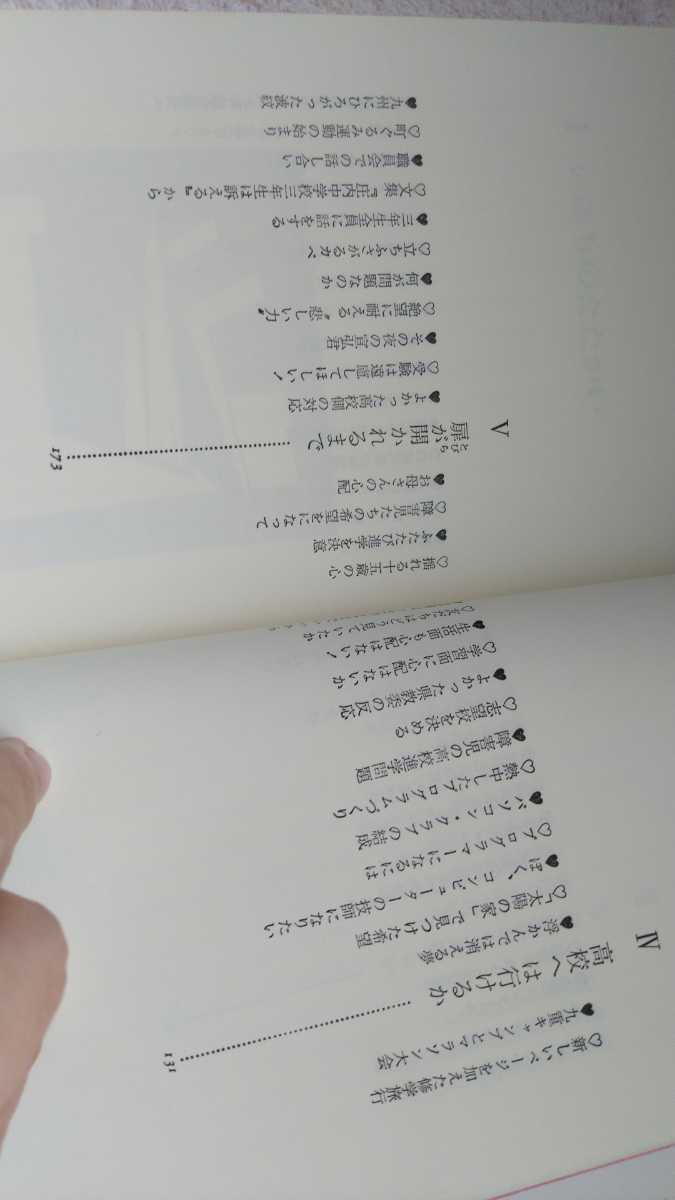 ♡新しいページを加えた修学旅行
♥九重キャンプとマラソン大会
Ⅳ 高校へは行けるか…………131
♥浮かんでは消える夢
♡「太陽の家」で見つけた希望
♥ぼく、コンピューターの技師になりたい
♡プログラマーになるには
♥パソコン・クラブの結成
♡熱中したプログラムづくり
♥障害児の高校進学問題
♡志望校を決める
♥よかった県教委の反応
♡学習面に心配はないか
♥生活面も心配はない!
♡友だちはどう見ていたか
♡揺れる十五歳の心
♥ふたたび進学を決意
♡障害児たちの希望をになって
♥お母さんの心配
Ⅴ 扉が開かれるまで…………173
とびら
♥よかった高校側の対応
♡受験は遠慮してほしい!
♥その夜の宣弘君
♡絶望に耐える〝悲しい力〟
♥何が問題なのか
♡立ちふさがるかべ
♥三年生全員に話をする
♡文集『庄内中学校三年生は訴える』から
♥職員会での話し合い
♡町ぐるみ運動の始まり
♥九州にひろがった波紋